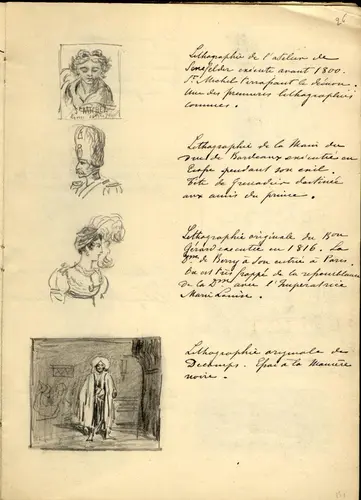 26
Lithographie de l'atelier de
Senefelder exécutée avant 1800.
St. Michel terrassant le démon.
Une des premières lithographies
connues.
Lithographie de la Main du
Duc de Bordeaux exécutée en
pendant son exil.
Tête de Grenadier destinée
aux amis du prince.
Lithographie originale du Bon
Gérard exécutée en 1816. La
Dsse de Berry à son entrée à Paris.
On est très frappé de la ressemblance
de la Dsse avec l'Impératrice
Marie Louise.
Lithographie originale de
Decamps. Epai à la Manière
noire.